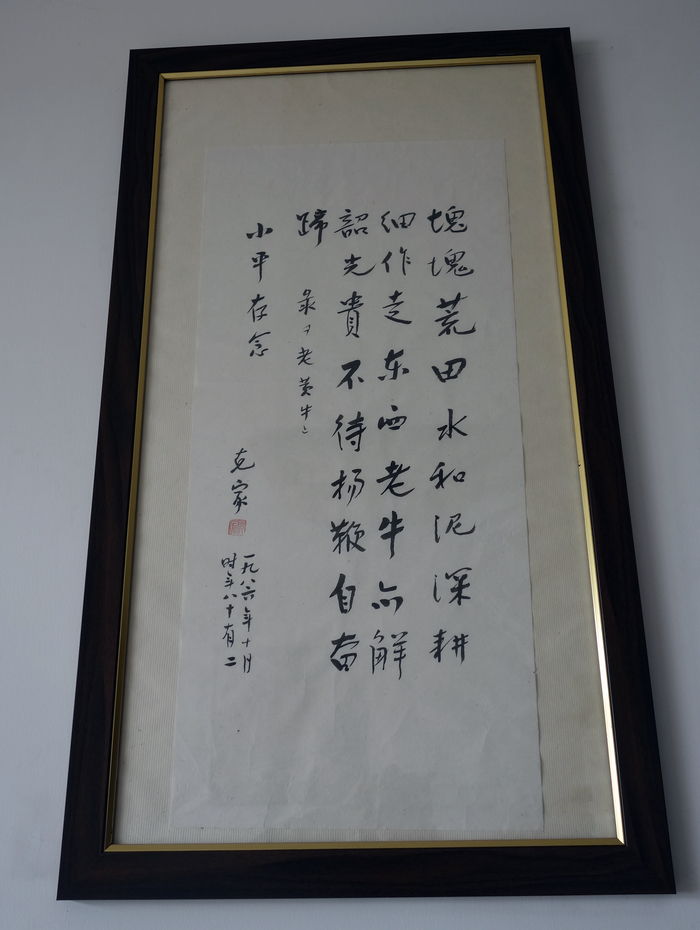 塊塊荒田水和泥深耕
细作走东西老牛亦解
韶光貴不待杨鞭自奋
蹄 录《老黄牛》
小平存念
克家
一九八六年十月
时年八十有二